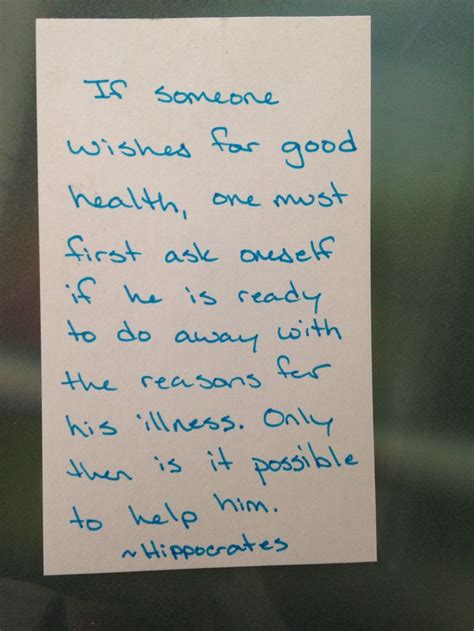 If someone
wishes for good
health, one must
first ask oneself
if he is ready
to do away with
the reasons for
his illness. Only
then is it possible
to help him.
~Hippocrates